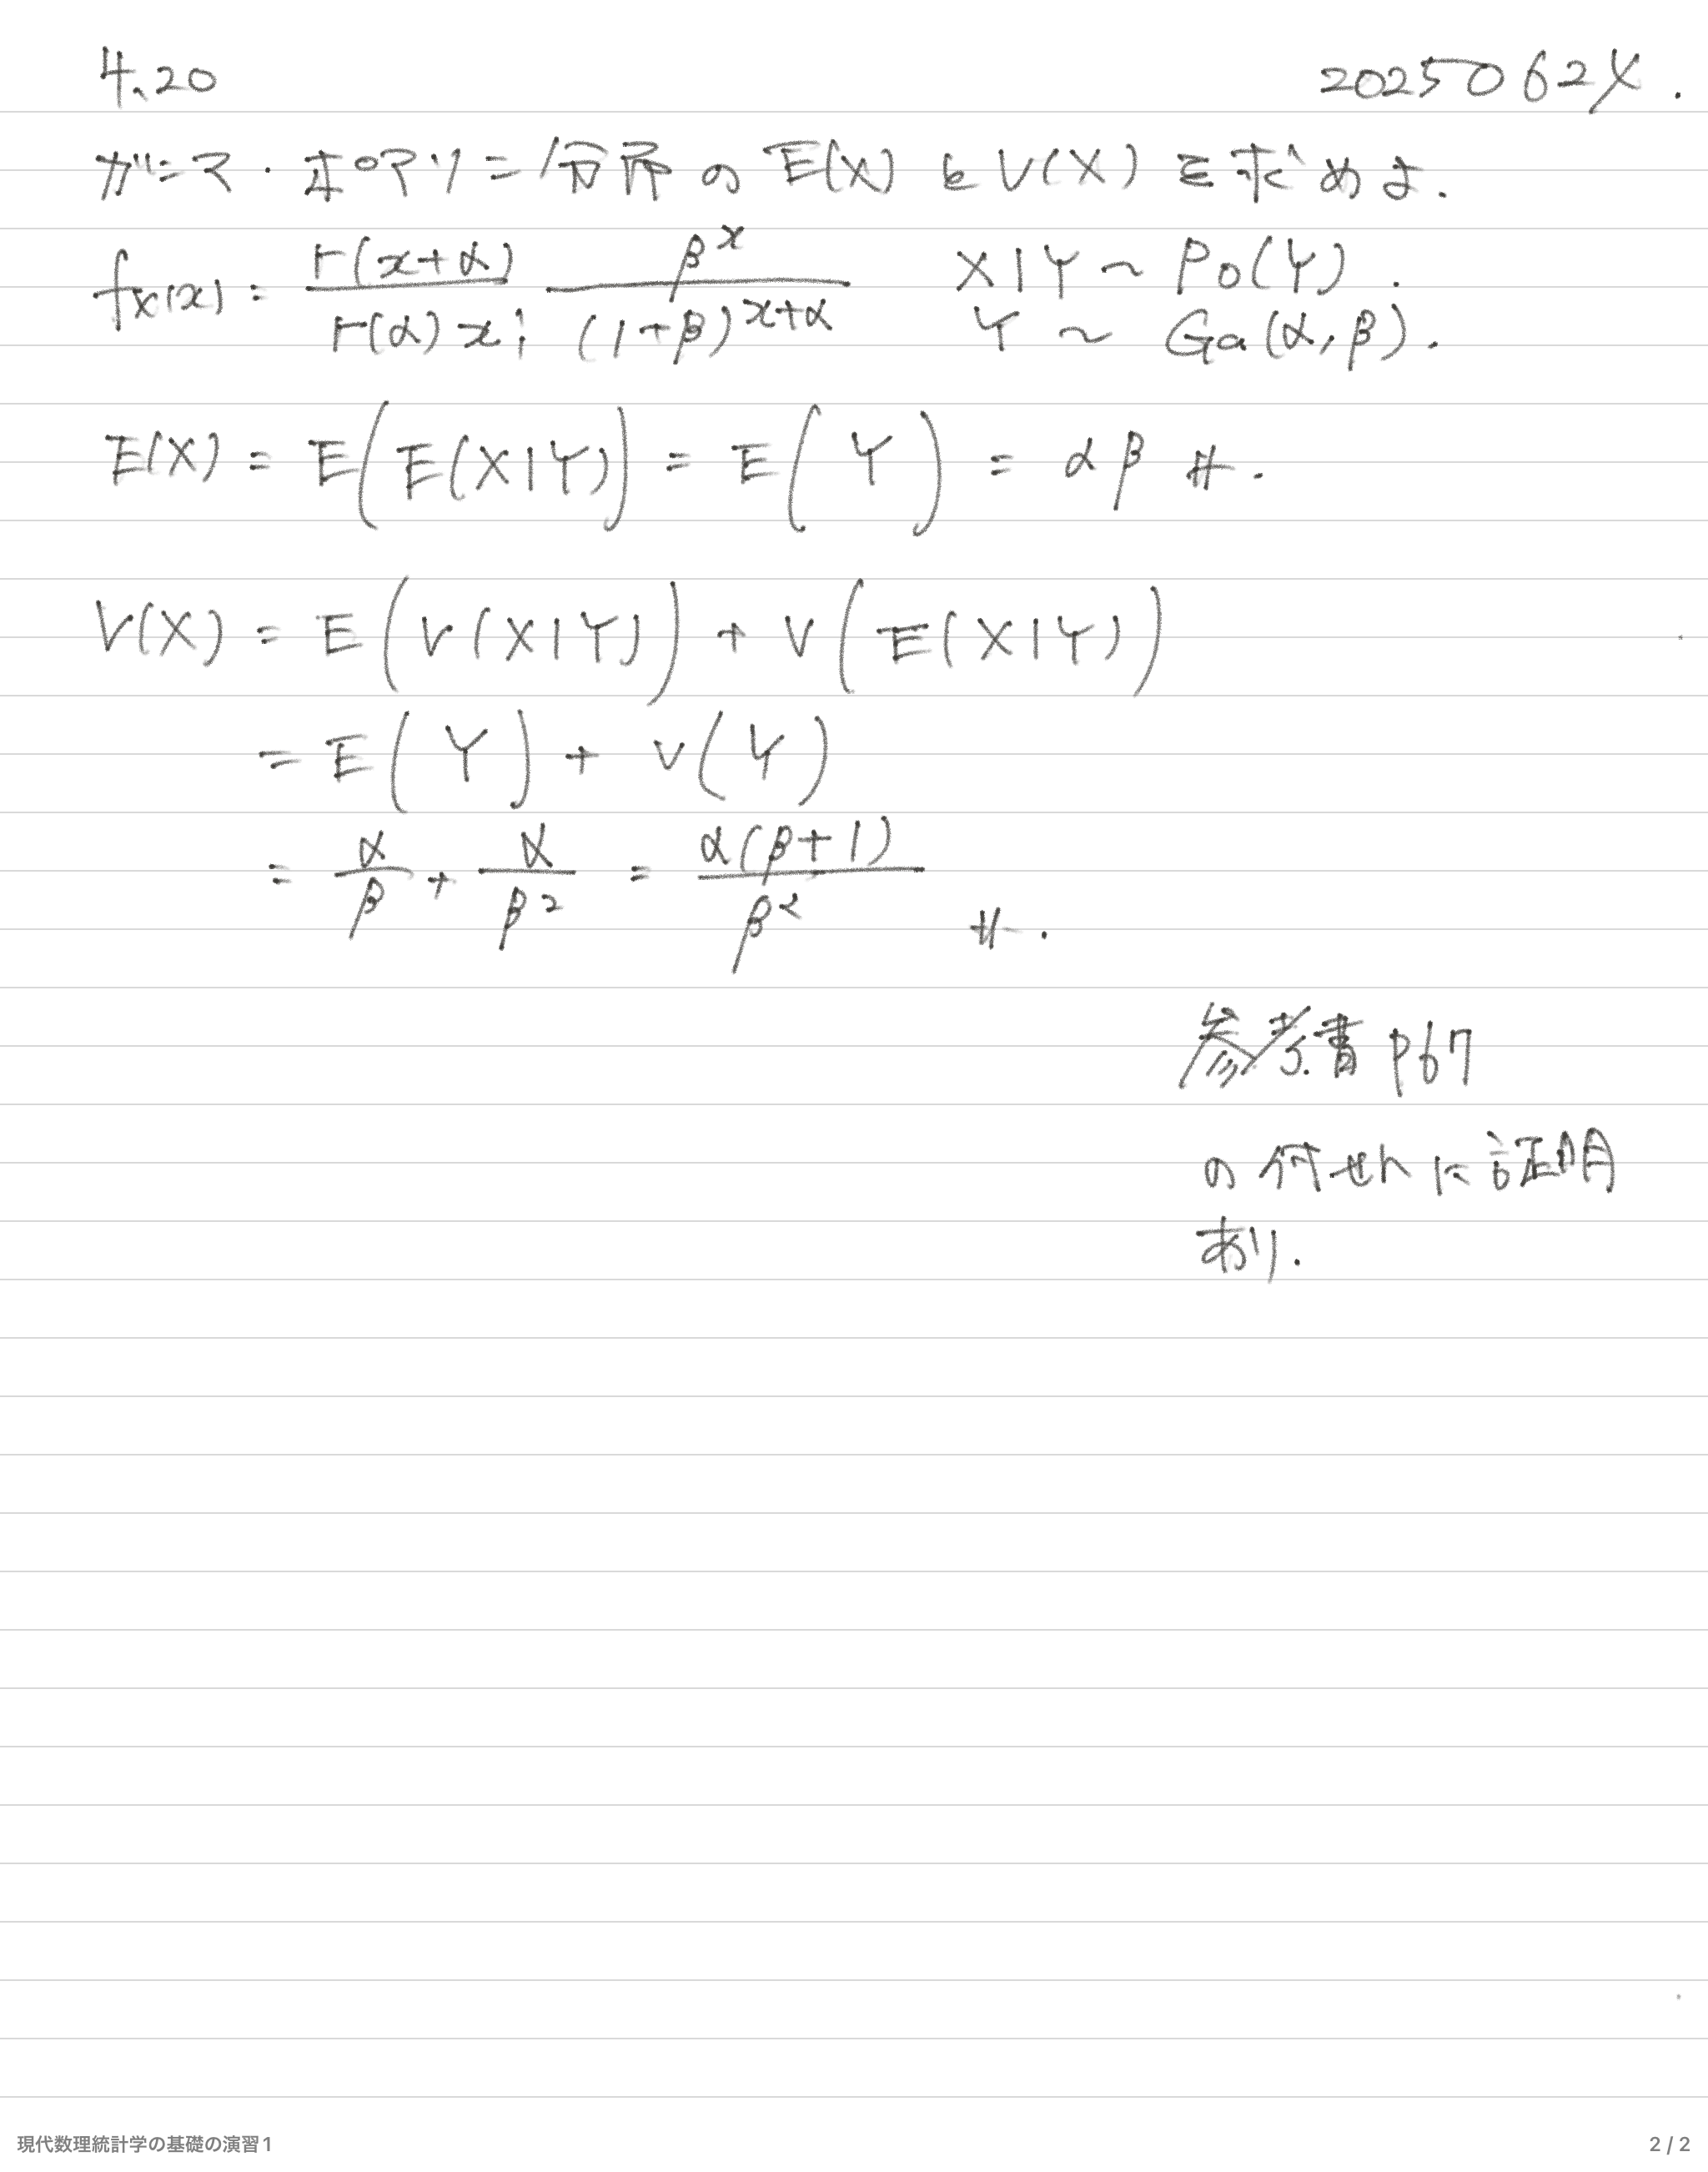 4.20 2025062X.
ガンマ・ポアソン分布のE(X)とV(X)を求めよ.
fX(x) = Γ(x+α)/Γ(α)x! β^x/(1+β)^(x+α) X|Y ~ Po(Y).
Y ~ Ga(α, β).
E(X) = E(E(X|Y)) = E(Y) = αβ #.
V(X) = E(V(X|Y)) + V(E(X|Y))
= E(Y) + V(Y)
= α/β + α/β² = α(β+1)/β² #.
参考書 P67
の付せんに証明
あり.
現代数理統計学の基礎の演習1 2 / 2